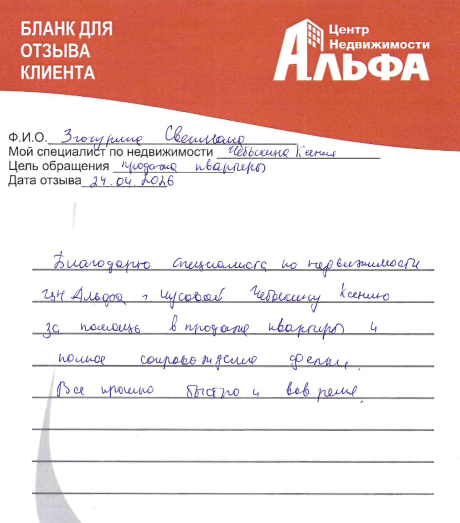 БЛАНК ДЛЯ
ОТЗЫВА
КЛИЕНТА
Центр
Недвижимости
АЛЬФА
Ф.И.О. Светлана
Мой специалист по недвижимости Чебыкина Ксения
Цель обращения продажа квартиры
Дата отзыва 24.04.2026
Благодарю специалиста по недвижимости
ЦН Альфа г. Чусовой Чебыкину Ксению
за помощь в продаже квартиры и
полное сопровождение сделки.
Все прошло быстро и вовремя.